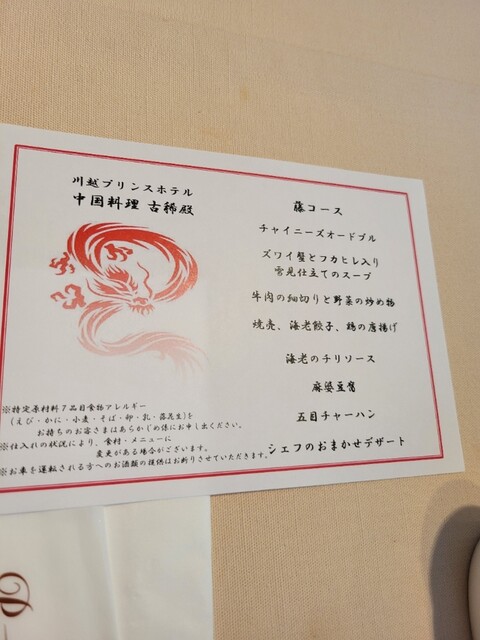 川越プリンスホテル
中国料理 古稀殿
藤コース
チャイニーズオードブル
ズワイ蟹とフカヒレ入り
雪見仕立てのスープ
牛肉の細切りと野菜の炒め物
焼売、海老餃子、鶏の唐揚げ
海老のチリソース
麻婆豆腐
五目チャーハン
シェフのおまかせデザート
※特定原材料７品目食物アレルギー
(えび・かに・小麦・そば・卵・乳・落花生)を
お持ちのお客さまはあらかじめ係にお申し出ください。
※仕入れの状況により、食材・メニューに
変更がある場合がございます。
※お車を運転される方へのお酒類の提供はお断りさせていただきます。
P